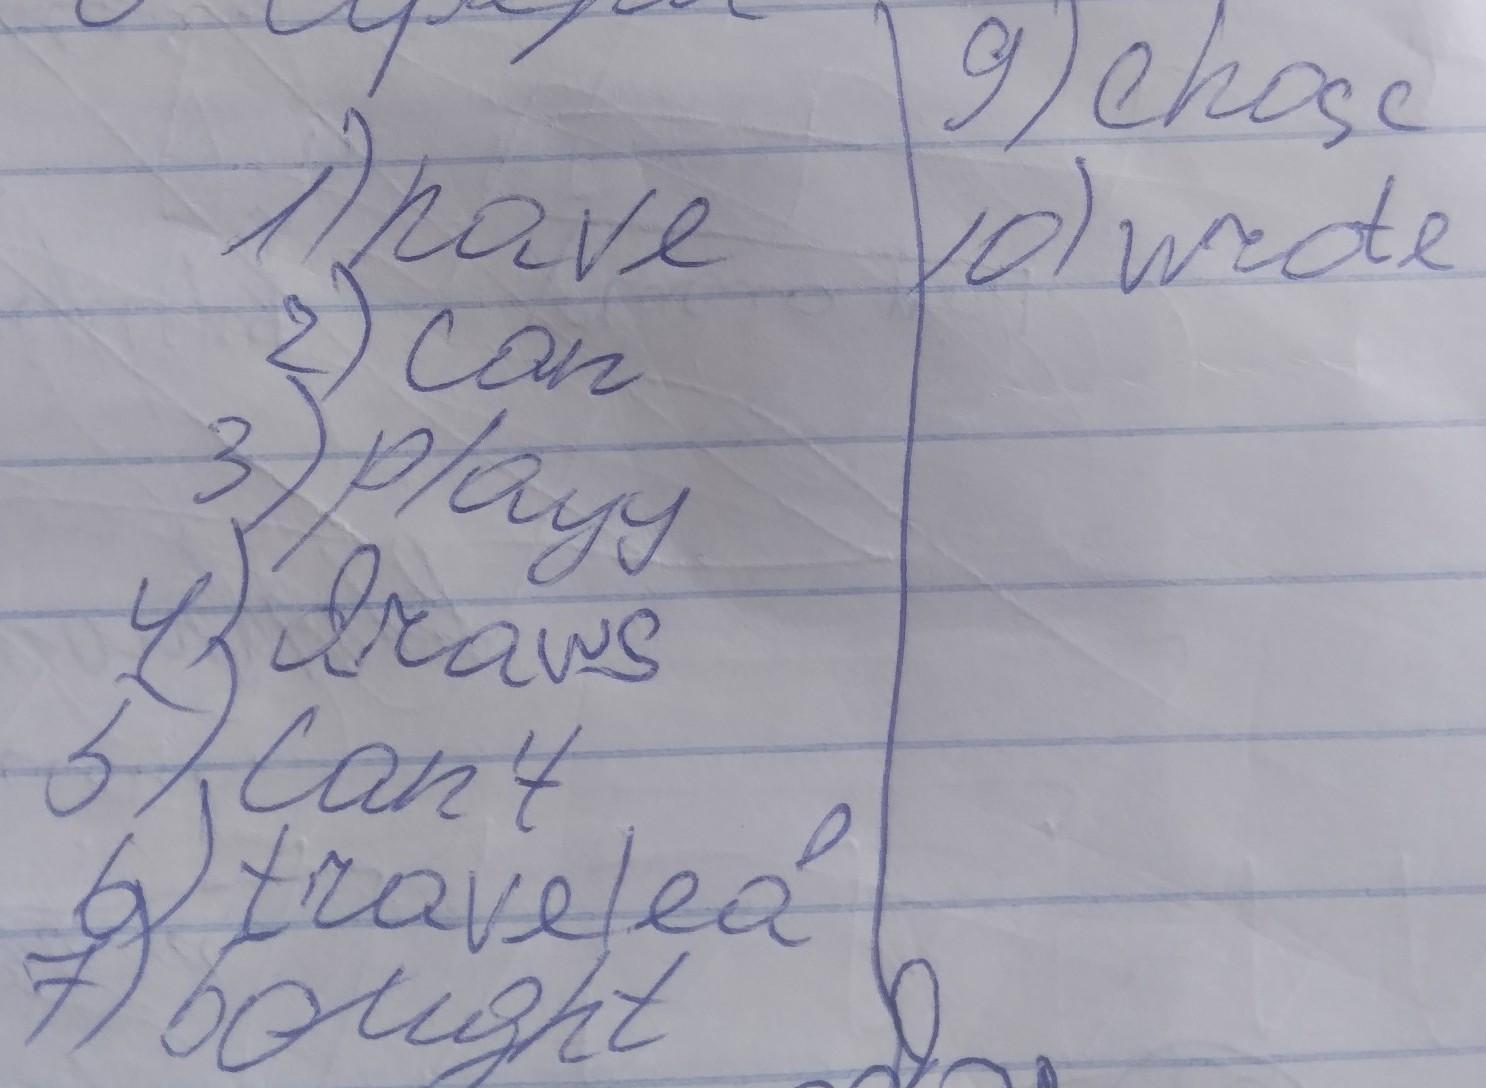 1) have
2) can
3) playy
4) draws
5) can4
6) traveled
7) bought
9) chose
10) wrote